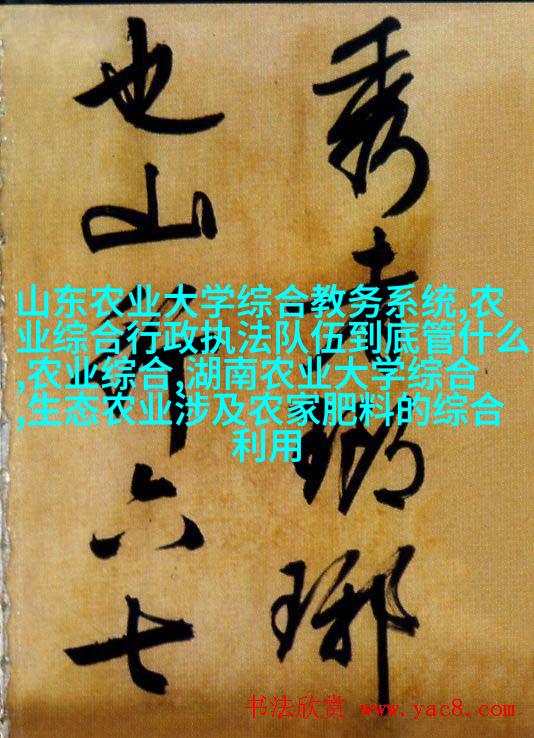 秀者瑯琊
也山行六七
山东农业大学综合教务系统,农
业综合行政执法队伍到底管什么
,农业综合,湖南农业大学综合
,生态农业涉及农家肥料的综合
利用
书法欣赏 www.yac8.com